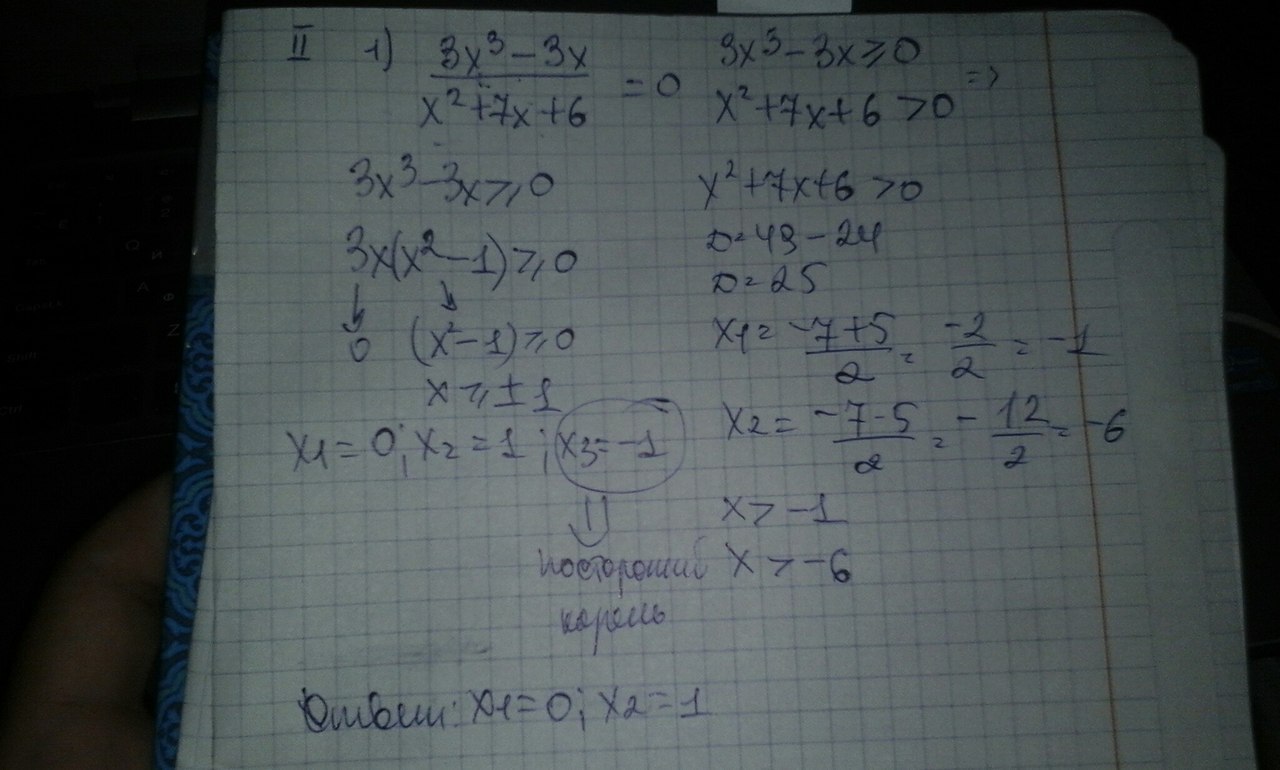 II 1) (3x³ - 3x)/(x² + 7x + 6) = 0
3x³ - 3x ⩾ 0
x² + 7x + 6 > 0 =>
3x³ - 3x ⩾ 0
3x(x² - 1) ⩾ 0
↓ ↓
0 (x² - 1) ⩾ 0
x ⩾ ± 1
x1 = 0; x2 = 1; x3 = -1
⇓
посторонний
корень
x² + 7x + 6 > 0
D = 49 - 24
D = 25
x1 = (-7+5)/2 = -2/2 = -1
x2 = (-7-5)/2 = -12/2 = -6
x > -1
x > -6
Ответ: x1 = 0; x2 = 1